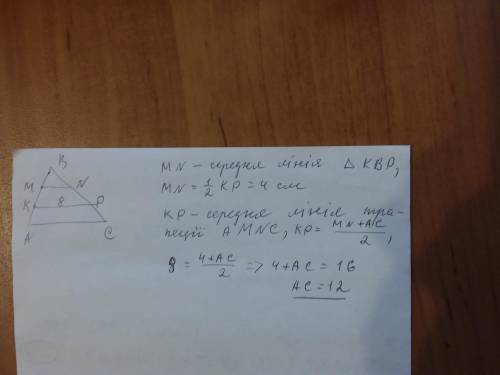 B
MN - середня лінія △ KBP,
M
N
MN = 1/2 KP = 4 см
K
8
P
KP - середня лінія тра-
A
C
пеції AMNC, KP = (MN+AC)/2,
8 = (4+AC)/2 => 4+AC = 16
AC = 12